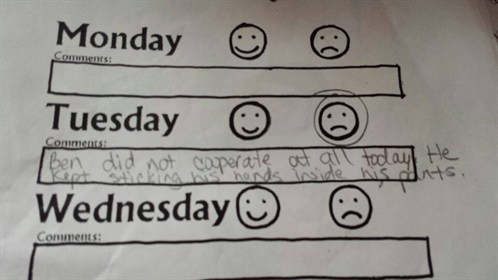 Monday
Comments:
Tuesday
Comments:
Ben did not cooperate at all today. He
kept sticking his hands inside his pants.
Wednesday
Comments: